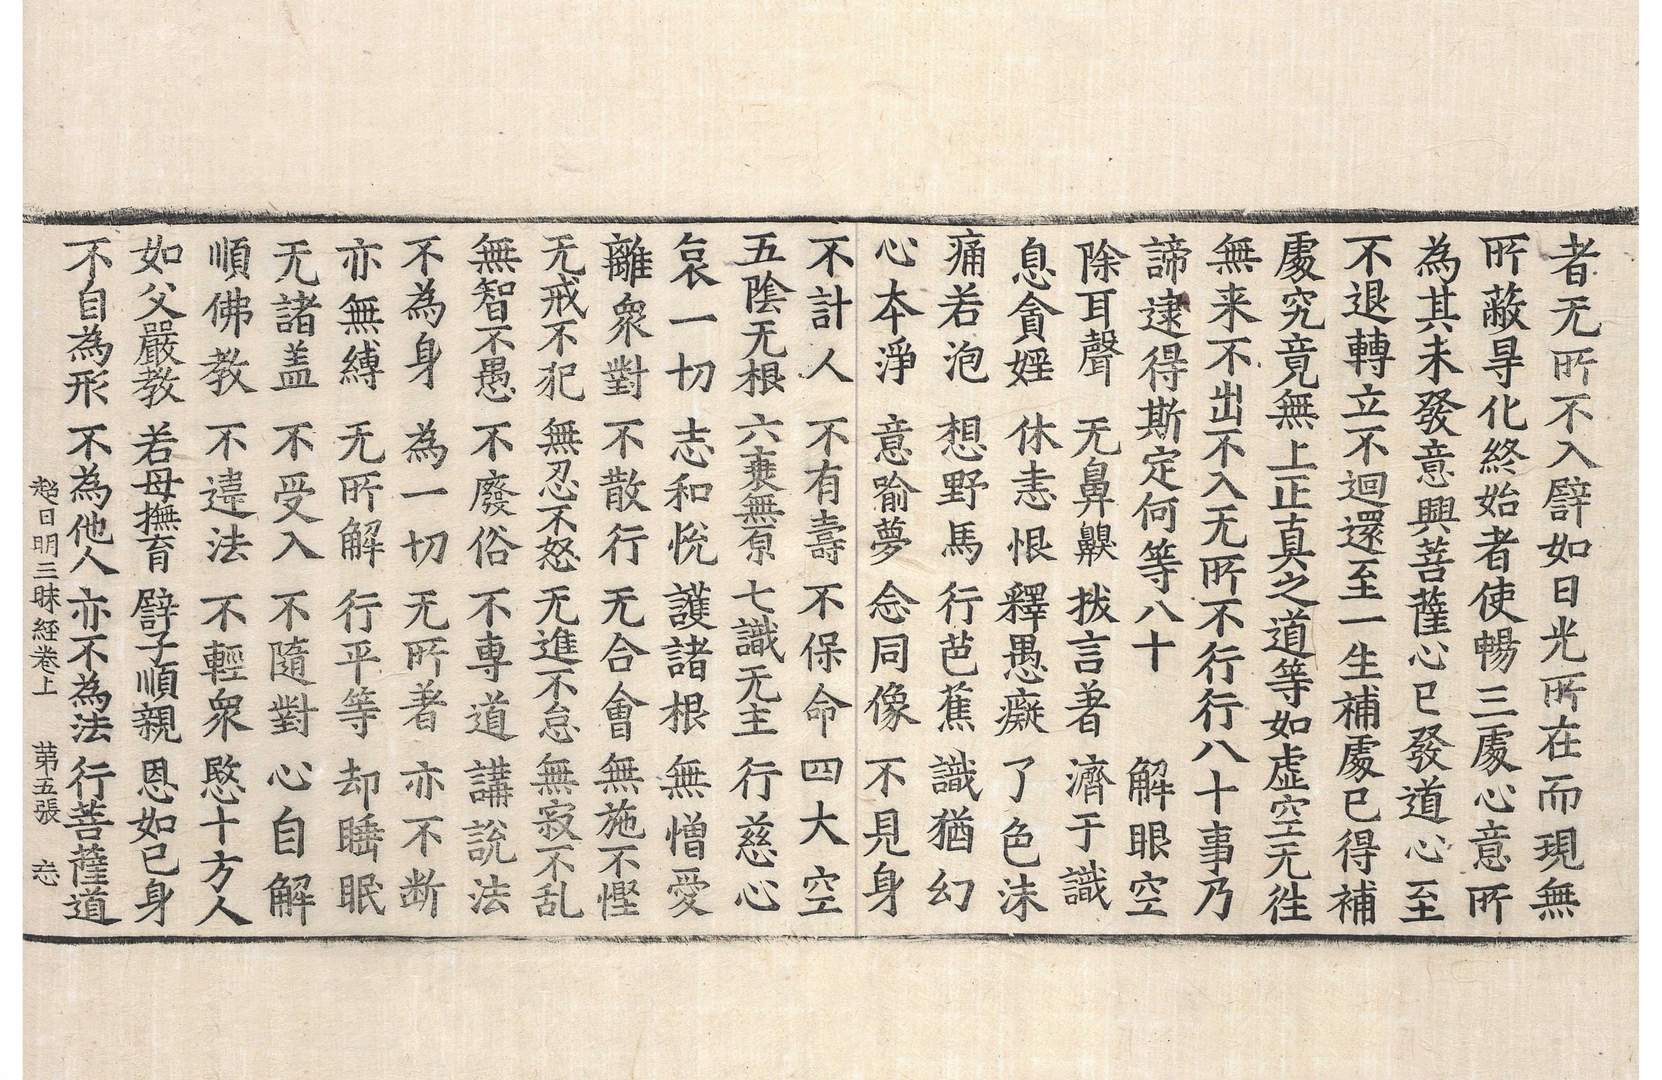 者无所不入譬如日光所在而現無
所蔽㝵化終始者使暢三處心意所
為其未發意興菩薩心已發道心至
不退轉立不迴還至一生補處已得補
處究竟無上正真之道等如虛空无徃
無来不出不入无所不行行八十事乃
諦逮得斯定何等八十 解眼空
除耳聲 无鼻齅 拔言著 濟于識
息貪婬 休恚恨 釋愚癡 了色沫
痛若泡 想野馬 行芭蕉 識猶幻
心本淨 意喻夢 念同像 不見身
不計人 不有壽 不保命 四大空
五陰无根 六衰無原 七識无主 行慈心
哀一切 志和悅 護諸根 無憎愛
離衆對 不散行 无合會 無施不慳
无戒不犯 無忍不怒 无進不怠 無寂不乱
無智不愚 不廢俗 不專道 講說法
不為身 為一切 无所著 亦不断
亦無縛 无所解 行平等 却睡眠
无諸盖 不受入 不隨對 心自解
順佛教 不違法 不輕衆 愍十方人
如父嚴教 若母撫育 譬子順親 恩如已身
不自為形 不為他人 亦不為法 行菩薩道
超日明三昧経卷上 第五張